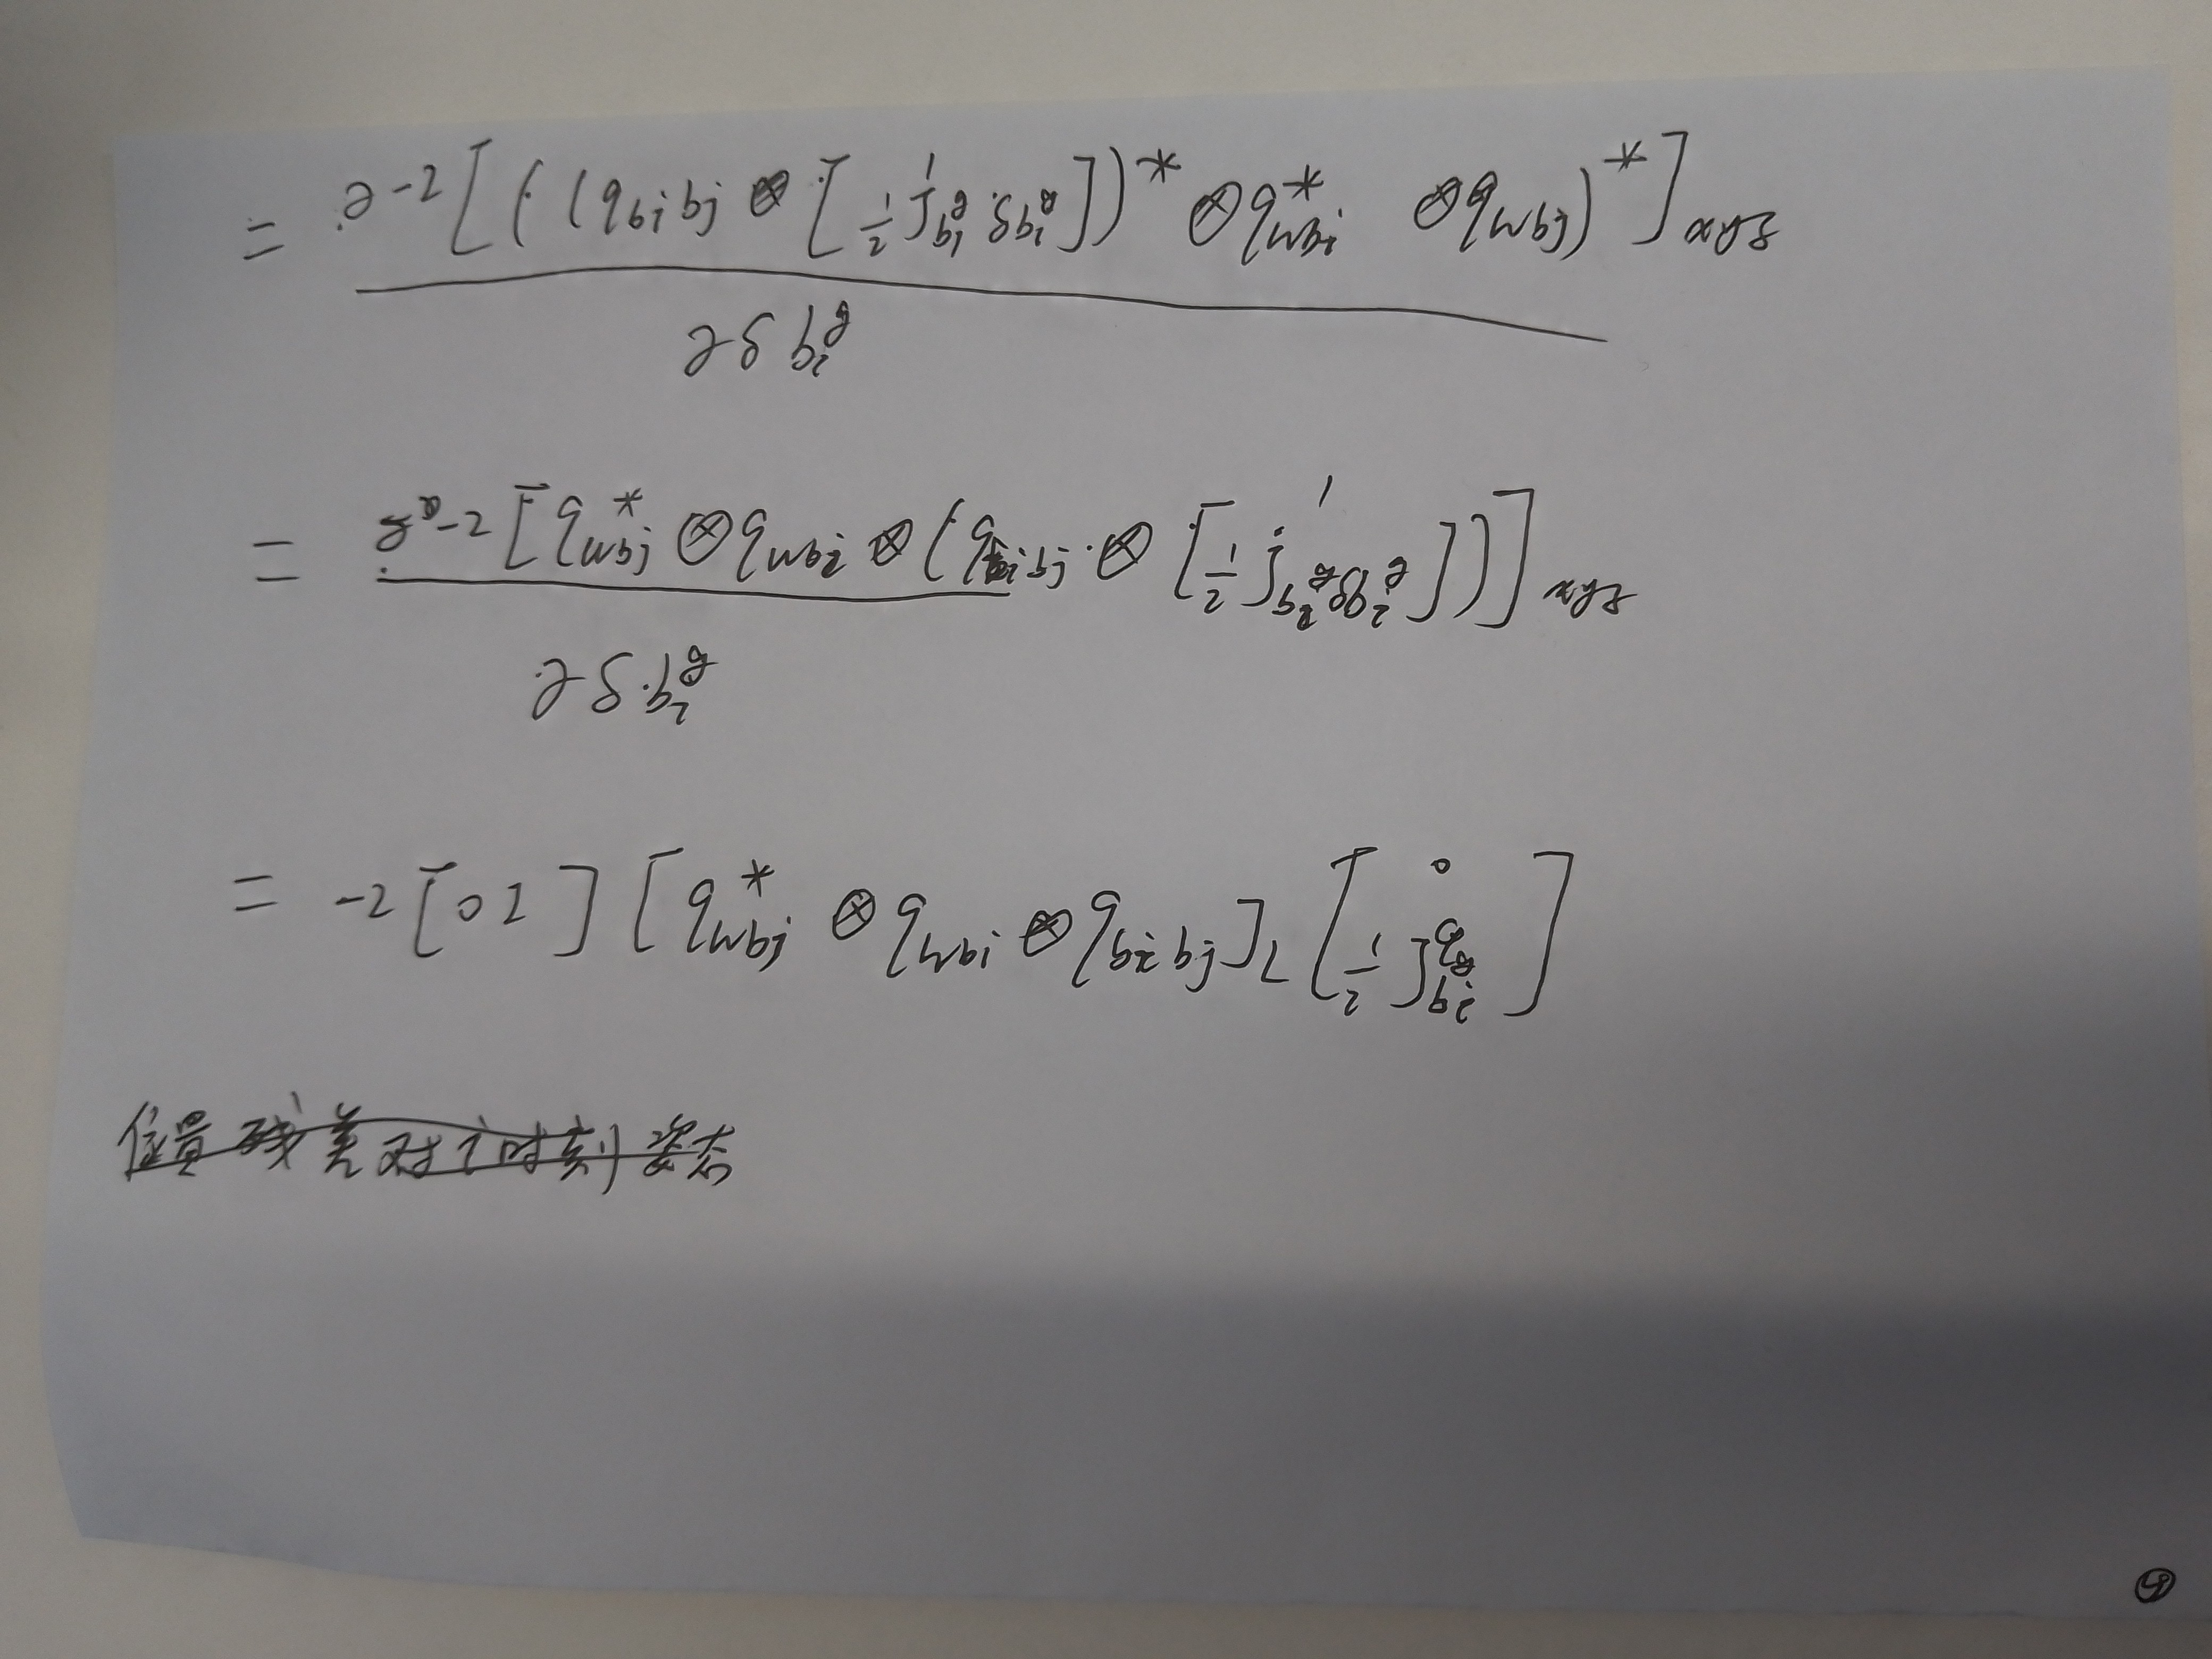 = ∂ -2 [ ( ( q_{bibj} ⊗ [ 1 ; 1/2 J_{bi}^{g} δb_i^{g} ] )^* ⊗ q_{wbi}^* ⊗ q_{wbj} )^* ]_{xyz}
∂ δ b_i^g
= ∂ -2 [ q_{wbj}^* ⊗ q_{wbi} ⊗ ( q_{bibj} ⊗ [ 1 ; 1/2 J_{bi}^{g} δb_i^{g} ] ) ]_{xyz}
∂ δ b_i^g
= -2 [ 0 I ] [ q_{wbj}^* ⊗ q_{wbi} ⊗ q_{bibj} ]_L [ 0 ; 1/2 J_{bi}^{qg} ]
位置残差对i时刻姿态
⑨